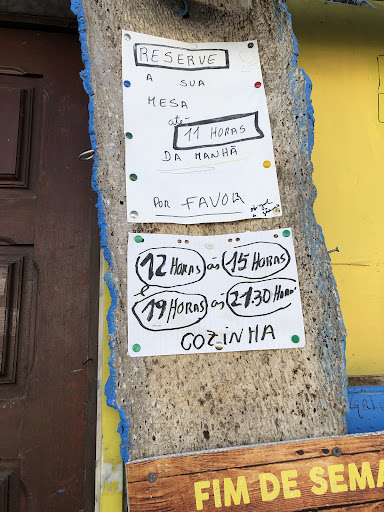 RESERVE
A SUA
MESA
até
11 HORAS
DA MANHÃ
POR FAVOR
12 HORAS às 15 HORAS
e
19 HORAS às 21:30 HORAS
COZINHA
FIM DE SEMA